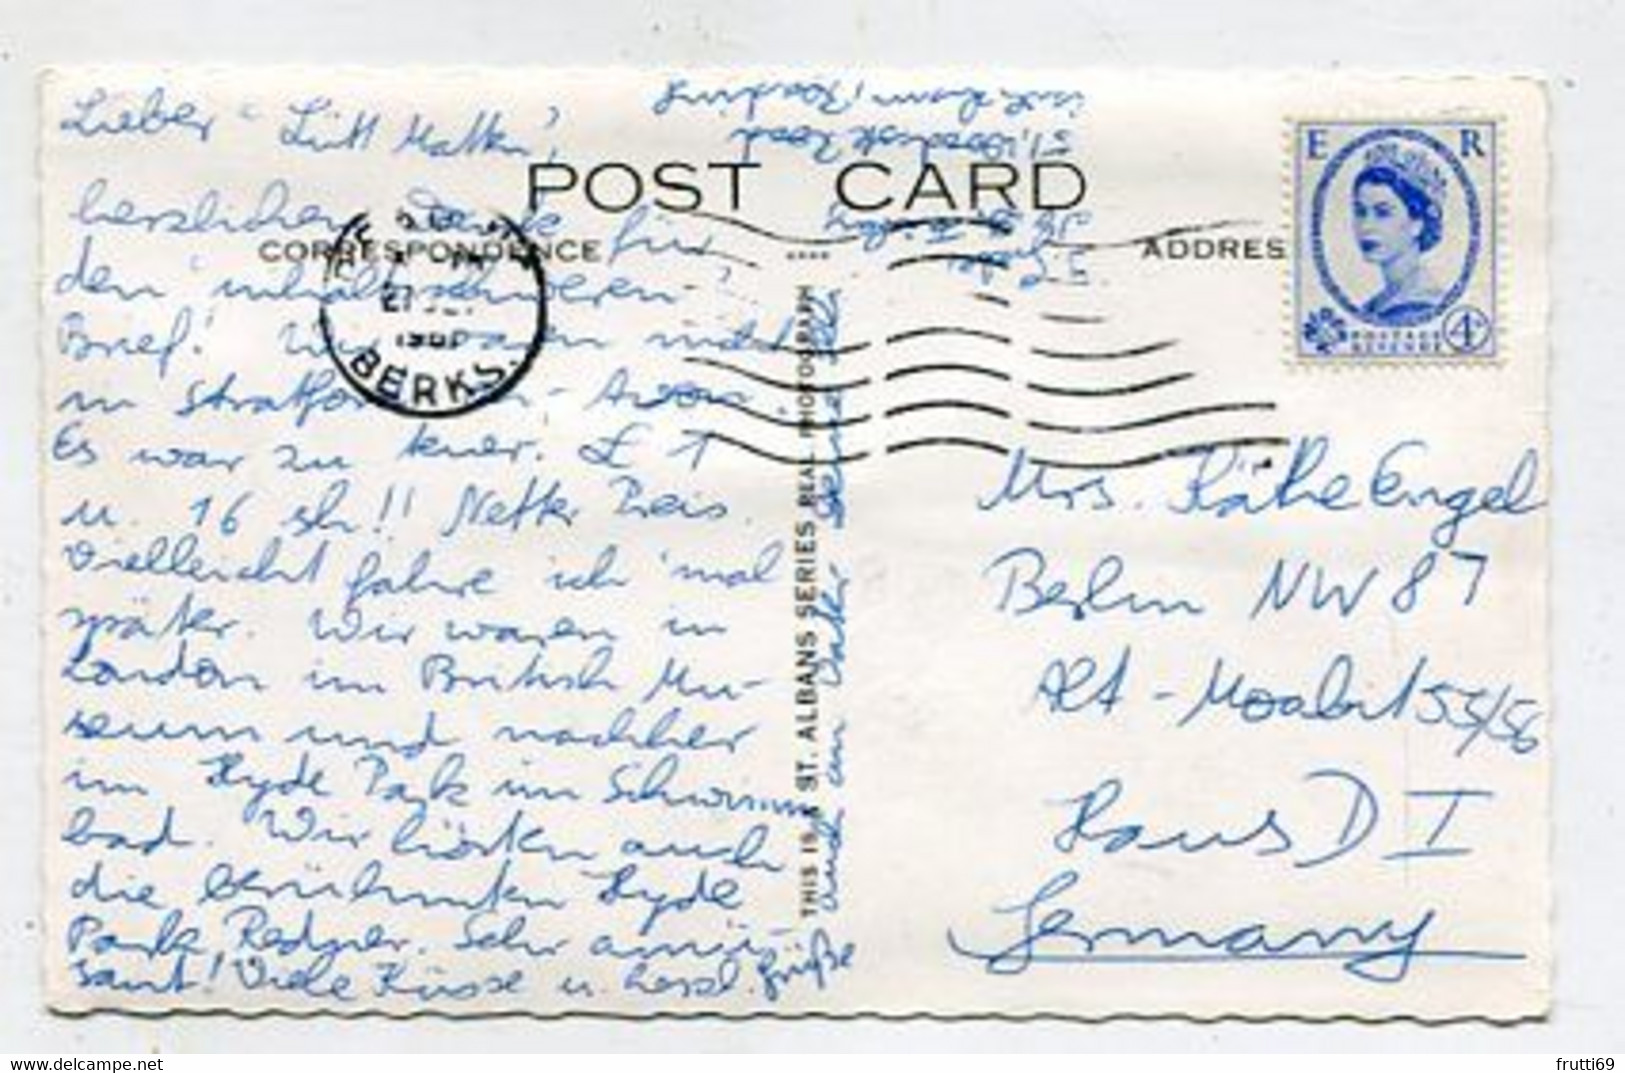 Lieber "Lütt Matten",
herzlichen Dank für
den "inhaltsschweren"
Brief! Wir waren nicht
in Stratford - on - Avon.
Es war zu teuer. £ 1
u. 16 sh!! Netter Preis.
Vielleicht fahre ich 'mal
später. Wir waren in
London im British Mu-
seum und nachher
im Hyde Park im Schwimm
bad. Wir hörten auch
die berühmten Hyde
Park Redner. Sehr amü-
sant! Viele Küsse u. herzl. Grüße
auch an Vater Deine
POST CARD
CORRESPONDENCE
ADDRES
THIS IS A ST. ALBANS SERIES REAL PHOTOGRAPH
BERKS.
E R
POSTAGE
REVENUE
4D
Mrs. Käthe Engel
Berlin NW 87
Alt - Moabit 55/56
Haus D I
Germany
Road
Reading
frutti69